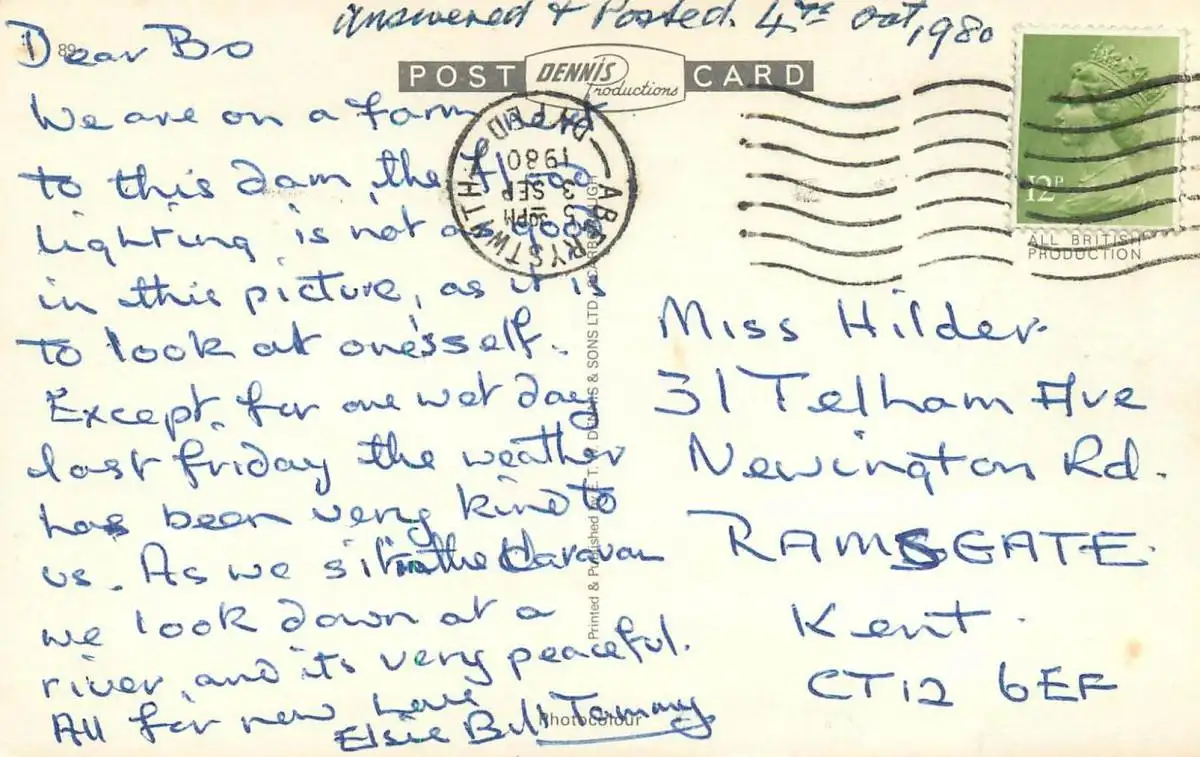 Answered & Posted. 4th Oct, 1980
89
Dear Bo
POST DENNIS Productions CARD
We are on a farm next
to this dam, the flood
lighting is not as good
in this picture, as it is
to look at one'sself.
Except. for one wet day
last friday the weather
has been very kind to
us. As we sit in the Caravan
we look down at a
river, and it's very peaceful.
All for now Love
Elsie Bill Tommy
Photocolour
ABERYSTWYTH DYFED
5 30PM
3 SEP
1980
12P
ALL BRITISH
PRODUCTION
Miss Hilder
31 Telham Ave
Newington Rd.
RAMSGATE.
Kent.
CT12 6EF
Printed & Published by E.T.W. DENNIS & SONS LTD., SCARBOROUGH